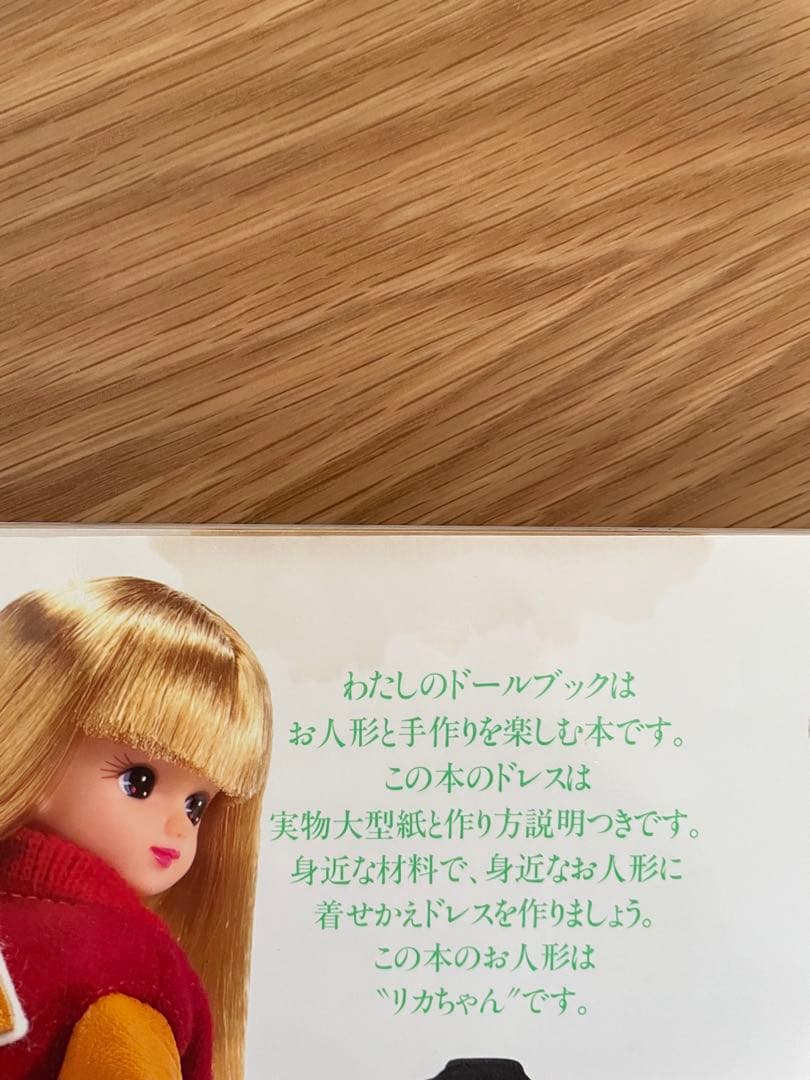 わたしのドールブックは
お人形と手作りを楽しむ本です。
この本のドレスは
実物大型紙と作り方説明つきです。
身近な材料で、身近なお人形に
着せかえドレスを作りましょう。
この本のお人形は
〝リカちゃん〟です。